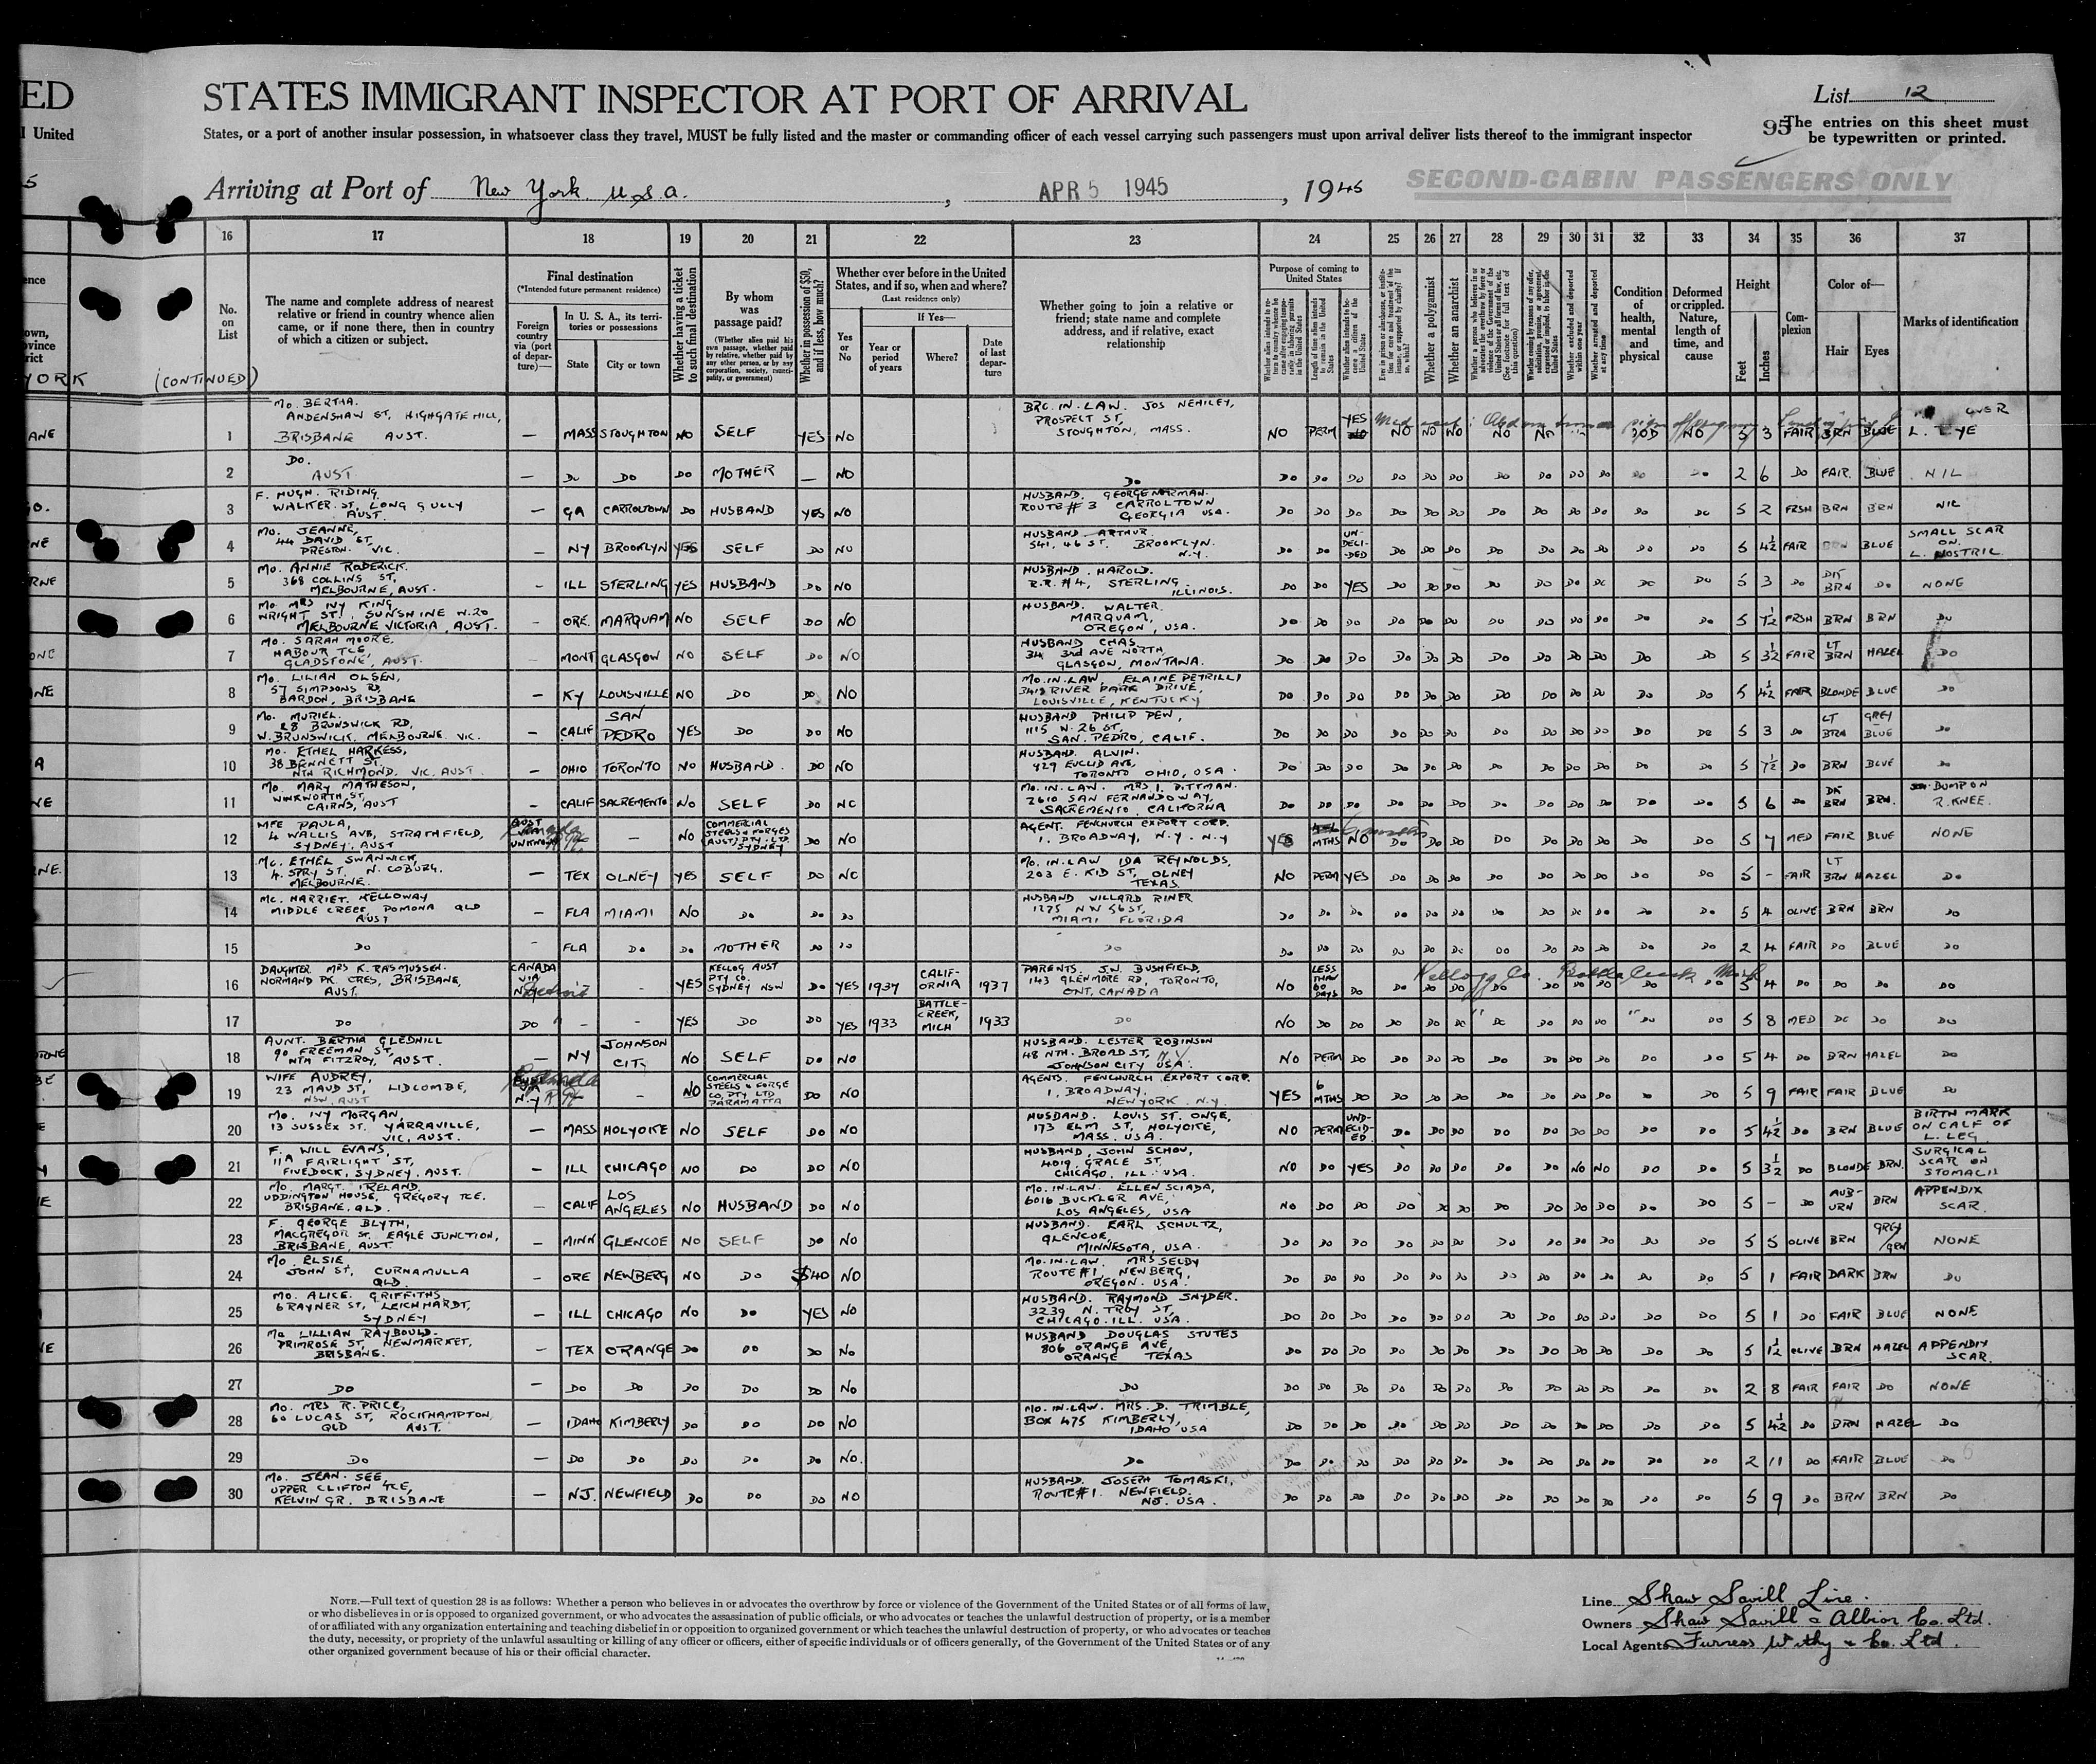 ED
STATES IMMIGRANT INSPECTOR AT PORT OF ARRIVAL
List 12
l United
States, or a port of another insular possession, in whatsoever class they travel, MUST be fully listed and the master or commanding officer of each vessel carrying such passengers must upon arrival deliver lists thereof to the immigrant inspector
95
The entries on this sheet must
be typewritten or printed.
5
Arriving at Port of New York U.S.A. , APR 5 1945 , 1945
SECOND-CABIN PASSENGERS ONLY
16 17 18 19 20 21 22 23 24 25 26 27 28 29 30 31 32 33 34 35 36 37
No. on List
The name and complete address of nearest
relative or friend in country whence alien
came, or if none there, then in country
of which a citizen or subject.
Final destination
(*Intended future permanent residence)
Foreign country via (port of departure)—
In U. S. A., its territories or possessions
State
City or town
Whether having a ticket to such final destination
By whom was passage paid?
(Whether alien paid his own passage, whether paid by relative, whether paid by any other person, or by any corporation, society, municipality, or government)
Whether in possession of $50, and if less, how much?
Whether over before in the United
States, and if so, when and where?
(Last residence only)
Yes or No
If Yes—
Year or period of years
Where?
Date of last departure
Whether going to join a relative or
friend; state name and complete
address, and if relative, exact
relationship
Purpose of coming to United States
Whether a polygamist
Whether an anarchist
Condition of health, mental and physical
Deformed or crippled. Nature, length of time, and cause
Height
Feet
Inches
Complexion
Color of—
Hair
Eyes
Marks of identification
YORK (CONTINUED)
1 MO. BERTHA. ANDENSHAW ST, HIGHGATE HILL, BRISBANE AUST. — MASS STOUGHTON NO SELF YES NO BRO. IN. LAW. JOS NEHILEY, PROSPECT ST, STOUGHTON, MASS. NO PERM YES NO NO NO NO NO 5 3 FAIR BRN BLUE
2 DO. AUST — DO DO DO MOTHER — NO DO DO DO DO DO DO DO DO DO DO DO DO DO 2 6 DO FAIR BLUE NIL
3 F. HUGH. RIDING. WALKER ST, LONG GULLY AUST. — GA CARROLTOWN DO HUSBAND YES NO HUSBAND. GEORGE NORMAN. ROUTE #3 CARROLTOWN GEORGIA USA. DO DO DO DO DO DO DO DO DO DO DO DO 5 2 FRSH BRN BRN NIL
4 MO. JEANNE, 44 DAVID ST, PRESTON. VIC. — NY BROOKLYN YES SELF DO NO HUSBAND ARTHUR. 541, 46 ST. BROOKLYN. N.Y. DO DO UN-DECI-DED DO DO DO DO DO DO DO DO DO 5 4½ FAIR BLUE SMALL SCAR ON. L. NOSTRIL
5 MO. ANNIE RODERICK. 368 COLLINS ST, MELBOURNE, AUST. — ILL STERLING YES HUSBAND DO NO HUSBAND. HAROLD. R.R. #4, STERLING ILLINOIS. DO DO YES DO DO DO DO DO DO DO DO DO 5 3 DO DK BRN DO NONE
6 MO. MRS IVY KING WRIGHT ST. SUNSHINE W.20 MELBOURNE VICTORIA, AUST. — ORE. MARQUAM NO SELF DO NO HUSBAND. WALTER. MARQUAM, OREGON, USA. DO DO DO DO DO DO DO DO DO DO DO DO 5 7½ FRSH BRN BRN DO
7 MO. SARAH MOORE. HABOUR TCE, GLADSTONE, AUST. MONT GLASGOW NO SELF DO NO HUSBAND CHAS. 34 3rd AVE NORTH, GLASGOW, MONTANA. DO DO DO DO DO DO DO DO DO DO DO DO 5 3½ FAIR LT BRN HAZEL DO
8 MO. LILIAN OLSEN, 57 SIMPSONS RD, BARDON, BRISBANE — KY LOUISVILLE NO DO DO NO MO. IN. LAW ELAINE PETRILLI 3418 RIVER PARK DRIVE, LOUISVILLE, KENTUCKY DO DO DO DO DO DO DO DO DO DO DO DO 5 4½ FAIR BLONDE BLUE DO
9 MO. MURIEL. 28 BRUNSWICK RD, W. BRUNSWICK. MELBOURNE. VIC. — CALIF SAN PEDRO YES DO DO NO HUSBAND PHILIP PEW, 1115 W. 26 ST, SAN. PEDRO, CALIF. DO DO DO DO DO DO DO DO DO DO DO DO 5 3 DO LT BRN GREY BLUE DO
10 MO. ETHEL HARKESS, 38 BENNETT ST. NTH RICHMOND. VIC. AUST. — OHIO TORONTO NO HUSBAND. DO NO HUSBAND. ALVIN. 429 EUCLID AVE, TORONTO OHIO, USA. DO DO DO DO DO DO DO DO DO DO DO DO 5 7½ DO BRN BLUE DO
11 MO. MARY MATHESON, WINKWORTH ST, CAIRNS, AUST — CALIF SACREMENTO NO SELF DO NO MO. IN. LAW. MRS I. DITTMAN. 2610 SAN FERNANDO WAY, SACREMENTO CALIFORNA DO DO DO DO DO DO DO DO DO DO DO DO 5 6 DO DK BRN BRN. BUMP ON R. KNEE.
12 WIFE PAULA, 4 WALLIS AVE, STRATHFIELD, SYDNEY, AUST Canada — NO COMMERCIAL STEELS & FORGES (AUST) PTY. LTD. SYDNEY DO NO AGENT. FENCHURCH EXPORT CORP. 1. BROADWAY, N.Y. N.Y YES 6 months MTHS NO DO DO DO DO DO DO DO DO DO 5 7 MED FAIR BLUE NONE
13 MO. ETHEL SWANWICK, 4. SPRY ST. N. COBURG. MELBOURNE. — TEX OLNEY YES SELF DO NO MO. IN. LAW IDA REYNOLDS, 203 E. KID ST, OLNEY TEXAS NO PERM YES DO DO DO DO DO DO DO DO DO 5 - FAIR LT BRN HAZEL DO
14 MO. HARRIET. KELLOWAY MIDDLE CREEK POMONA QLD AUST — FLA MIAMI NO DO DO DO HUSBAND WILLARD RINER 1275 NW 56 ST, MIAMI FLORIDA DO DO DO DO DO DO DO DO DO DO DO DO 5 4 OLIVE BRN BRN DO
15 DO — FLA DO DO MOTHER DO DO DO DO DO DO DO DO DO DO DO DO DO DO DO 2 4 FAIR DO BLUE DO
16 DAUGHTER MRS K. RASMUSSEN. NORMAND PK. CRES, BRISBANE, AUST. CANADA VIA N.Y. Detroit - YES KELLOG AUST PTY CO. SYDNEY NSW DO YES 1937 CALIFORNIA 1937 PARENTS. J.W. BUSHFIELD, 143 GLENMORE RD, TORONTO, ONT. CANADA NO LESS THAN 60 DAYS DO Kellogg Co. Battle Creek Mich DO DO DO DO DO DO DO DO DO 5 4 DO DO DO DO
17 DO DO " - - YES DO DO YES 1933 BATTLE-CREEK, MICH 1933 DO NO DO DO DO DO DO DO DO DO DO DO DO 5 8 MED DO DO DO
18 AUNT. BERTHA GLEDHILL 90 FREEMAN ST, NTH FITZROY, AUST. — NY JOHNSON CITY NO SELF DO NO HUSBAND. LESTER ROBINSON 48 NTH. BROAD ST, N.Y JOHNSON CITY USA. NO PERM DO DO DO DO DO DO DO DO DO DO 5 4 DO BRN HAZEL DO
19 WIFE AUDREY, 23 MAUD ST, LIDCOMBE, NSW, AUST N.Y - NO COMMERCIAL STEELS & FORGE CO. PTY LTD PARAMATTA DO NO AGENTS. FENCHURCH EXPORT CORP. 1, BROADWAY, NEW YORK. N.Y. YES 6 MTHS DO DO DO DO DO DO DO DO DO DO 5 9 FAIR FAIR BLUE DO
20 MO. IVY MORGAN, 13 SUSSEX ST. YARRAVILLE, VIC, AUST. — MASS HOLYOKE NO SELF DO NO HUSBAND. LOUIS ST. ONGE, 173 ELM ST, HOLYOKE, MASS. USA. NO PERM UND-ECID-ED DO DO DO DO DO DO DO DO DO 5 4½ DO BRN BLUE BIRTH MARK ON CALF OF L. LEG.
21 F. WILL EVANS, 11A FAIRLIGHT ST, FIVEDOCK, SYDNEY. AUST. — ILL CHICAGO NO DO DO NO HUSBAND, JOHN SCHOU, 4019. GRACE ST, CHICAGO. ILL. USA. NO DO YES DO DO DO DO DO NO NO DO DO 5 3½ DO BLONDE BRN. SURGICAL SCAR ON STOMACH
22 MO. MARGT. IRELAND. UDDINGTON HOUSE, GREGORY TCE. BRISBANE. QLD. — CALIF LOS ANGELES NO HUSBAND DO NO MO. IN. LAW. ELLEN SCIADA, 6016 BUCKLER AVE, LOS ANGELES, USA NO DO DO DO DO DO DO DO DO DO DO DO 5 - DO AUBURN BRN APPENDIX SCAR.
23 F. GEORGE BLYTH, MACGREGOR ST. EAGLE JUNCTION, BRISBANE, AUST. — MINN GLENCOE NO SELF DO NO HUSBAND. EARL SCHULTZ, GLENCOE, MINNESOTA, USA. DO DO DO DO DO DO DO DO DO DO DO DO 5 5 OLIVE BRN GREY/GRN NONE
24 MO. ELSIE. JOHN ST, CUNNAMULLA QLD. — ORE NEWBERG NO DO $40 NO MO. IN. LAW. MRS SELBY ROUTE #1, NEWBERG, OREGON. USA. DO DO DO DO DO DO DO DO DO DO DO DO 5 1 FAIR DARK BRN DO
25 MO. ALICE. GRIFFITHS 6 RAYNER ST, LEICHHARDT, SYDNEY — ILL CHICAGO NO DO YES NO HUSBAND. RAYMOND SNYDER. 3239 N. TROY ST, CHICAGO. ILL. USA. DO DO DO DO DO DO DO DO DO DO DO DO 5 1 DO FAIR BLUE NONE
26 MO LILLIAN RAYBOULD. PRIMROSE ST, NEWMARKET, BRISBANE. — TEX ORANGE DO DO DO NO HUSBAND DOUGLAS STUTES 806 ORANGE AVE, ORANGE TEXAS DO DO DO DO DO DO DO DO DO DO DO DO 5 1½ OLIVE BRN HAZEL APPENDIX SCAR.
27 DO — DO DO DO DO DO NO DO DO DO DO DO DO DO DO DO DO DO DO DO 2 8 FAIR FAIR DO NONE
28 MO. MRS R. PRICE, 60 LUCAS ST, ROCKHAMPTON, QLD AUST. — IDAHO KIMBERLY DO DO DO NO MO. IN. LAW. MRS. D. TRIMBLE, BOX 475 KIMBERLY, IDAHO USA DO DO DO DO DO DO DO DO DO DO DO DO 5 4½ DO BRN HAZEL DO
29 DO — DO DO DO DO DO NO. DO DO DO DO DO DO DO DO DO DO DO DO DO 2 11 DO FAIR BLUE DO
30 MO. JEAN. SEE, UPPER CLIFTON TCE, KELVIN GR. BRISBANE — N.J. NEWFIELD DO DO DO NO HUSBAND. JOSEPH TOMASKI, ROUTE #1. NEWFIELD. N.J. USA. DO DO DO DO DO DO DO DO DO DO DO DO 5 9 DO BRN BRN DO
NOTE.—Full text of question 28 is as follows: Whether a person who believes in or advocates the overthrow by force or violence of the Government of the United States or of all forms of law,
or who disbelieves in or is opposed to organized government, or who advocates the assassination of public officials, or who advocates or teaches the unlawful destruction of property, or is a member
of or affiliated with any organization entertaining and teaching disbelief in or opposition to organized government or which teaches the unlawful destruction of property, or who advocates or teaches
the duty, necessity, or propriety of the unlawful assaulting or killing of any officer or officers, either of specific individuals or of officers generally, of the Government of the United States or of any
other organized government because of his or their official character.
Line Shaw Savill Line.
Owners Shaw Savill & Albion Co. Ltd.
Local Agents Furness Withy & Co. Ltd.